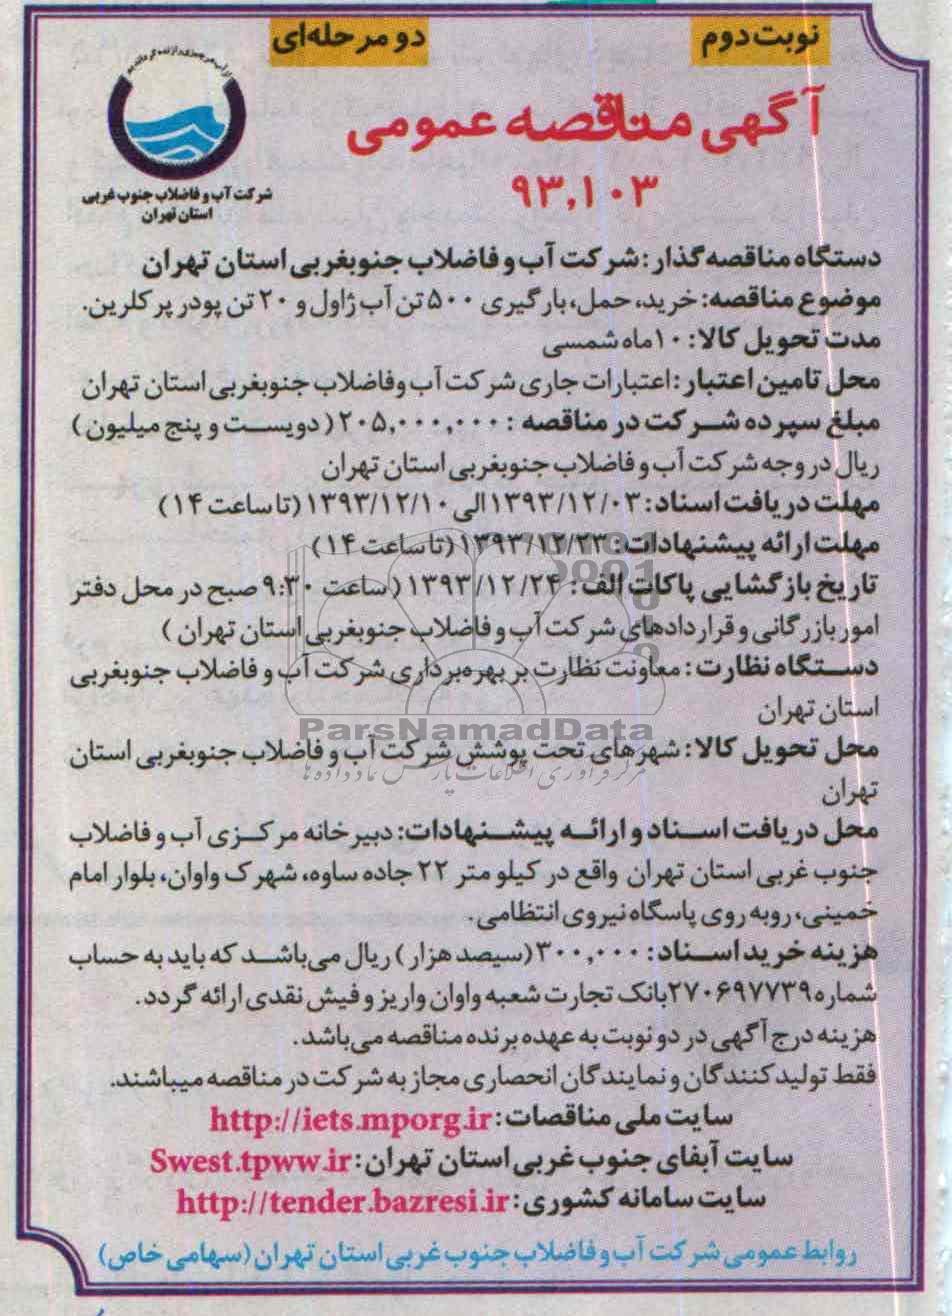 نوبت دوم
دو مرحله‌ای
آگهی مناقصه عمومی
۹۳,۱۰۳
شرکت آب و فاضلاب جنوب غربی
استان تهران
دستگاه مناقصه گذار: شرکت آب و فاضلاب جنوبغربی استان تهران
موضوع مناقصه: خرید، حمل، بارگیری ۵۰۰ تن آب ژاول و ۲۰ تن پودر پرکلرین.
مدت تحویل کالا: ۱۰ ماه شمسی
محل تامین اعتبار: اعتبارات جاری شرکت آب و فاضلاب جنوبغربی استان تهران
مبلغ سپرده شرکت در مناقصه: ۲۰۵,۰۰۰,۰۰۰ (دویست و پنج میلیون)
ریال در وجه شرکت آب و فاضلاب جنوبغربی استان تهران
مهلت دریافت اسناد: ۱۳۹۳/۱۲/۰۳ الی ۱۳۹۳/۱۲/۱۰ (تا ساعت ۱۴)
مهلت ارائه پیشنهادات: ۱۳۹۳/۱۲/۲۳ (تا ساعت ۱۴)
تاریخ بازگشایی پاکات الف: ۱۳۹۳/۱۲/۲۴ (ساعت ۹:۳۰ صبح در محل دفتر
امور بازرگانی و قراردادهای شرکت آب و فاضلاب جنوبغربی استان تهران)
دستگاه نظارت: معاونت نظارت بر بهره‌برداری شرکت آب و فاضلاب جنوبغربی
استان تهران
ParsNamadData
محل تحویل کالا: شهرهای تحت پوشش شرکت آب و فاضلاب جنوبغربی استان
مرکز فرآوری اطلاعات پارس نماد داده ها
تهران
محل دریافت اسناد و ارائه پیشنهادات: دبیرخانه مرکزی آب و فاضلاب
جنوب غربی استان تهران واقع در کیلو متر ۲۲ جاده ساوه، شهرک واوان، بلوار امام
خمینی، روبه روی پاسگاه نیروی انتظامی.
هزینه خرید اسناد: ۳۰۰,۰۰۰ (سیصد هزار) ریال می‌باشد که باید به حساب
شماره ۲۷۰۶۹۷۷۳۹ بانک تجارت شعبه واوان واریز و فیش نقدی ارائه گردد.
هزینه درج آگهی در دو نوبت به عهده برنده مناقصه می‌باشد.
فقط تولید کنندگان و نمایندگان انحصاری مجاز به شرکت در مناقصه میباشند.
سایت ملی مناقصات: http://iets.mporg.ir
سایت آبفای جنوب غربی استان تهران: Swest.tpww.ir
سایت سامانه کشوری: http://tender.bazresi.ir
روابط عمومی شرکت آب و فاضلاب جنوب غربی استان تهران (سهامی خاص)